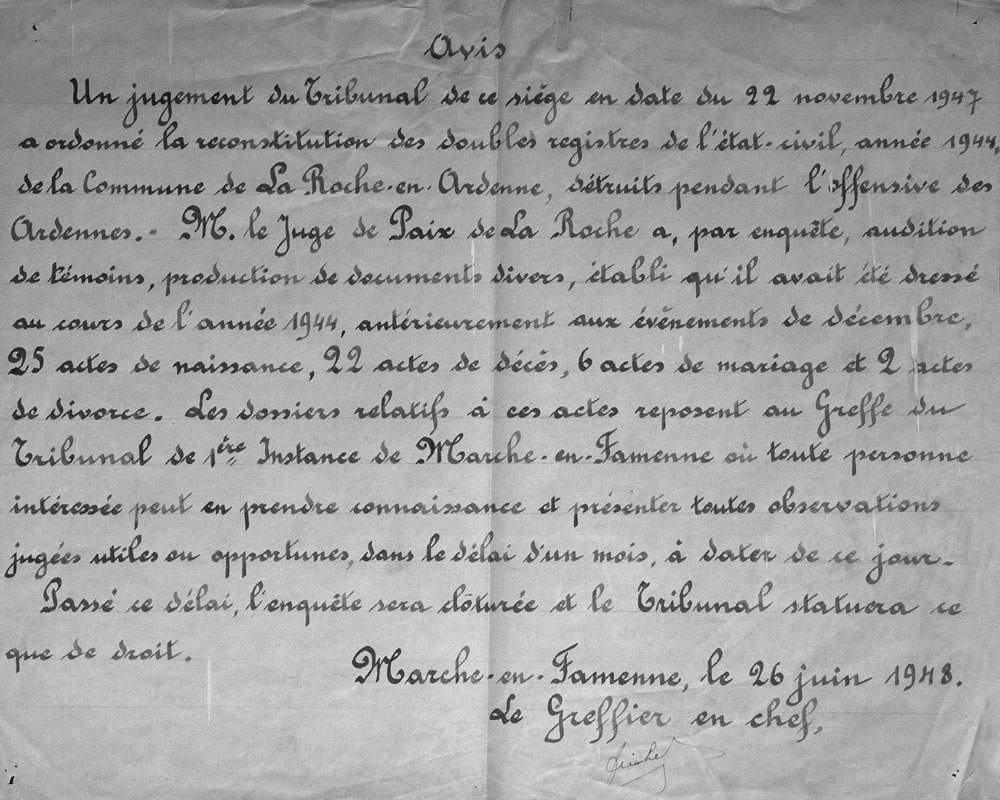 Avis
Un jugement du Tribunal de ce siége en date du 22 novembre 1947
a ordonné la reconstitution des doubles registres de l'état-civil, année 1944,
de la Commune de La Roche-en-Ardenne, détruits pendant l'offensive des
Ardennes.- M. le Juge de Paix de La Roche a, par enquête, audition
de témoins, production de documents divers, établi qu'il avait été dressé
au cours de l'année 1944, antérieurement aux événements de décembre,
25 actes de naissance, 22 actes de décés, 6 actes de mariage et 2 actes
de divorce. Les dossiers relatifs à ces actes reposent au Greffe du
Tribunal de 1ère Instance de Marche-en-Famenne où toute personne
intéressée peut en prendre connaissance et présenter toutes observations
jugées utiles ou opportunes, dans le délai d'un mois, à dater de ce jour.-
Passé ce délai, l'enquête sera clôturée et le Tribunal statuera ce
que de droit.
Marche-en-Famenne, le 26 juin 1948.
Le Greffier en chef,